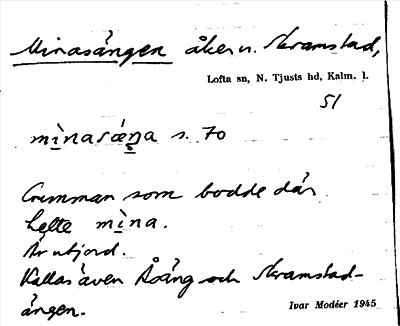 Minasången åker u. Skramstad,
Lofta sn, N. Tjusts hd, Kalm. l.
51
mìnasǽŋa s. 70
Gumman som bodde där
hette mìna.
Är utjord.
Kallas även Åäng och Skramstad-
ängen.
Ivar Modéer 1945